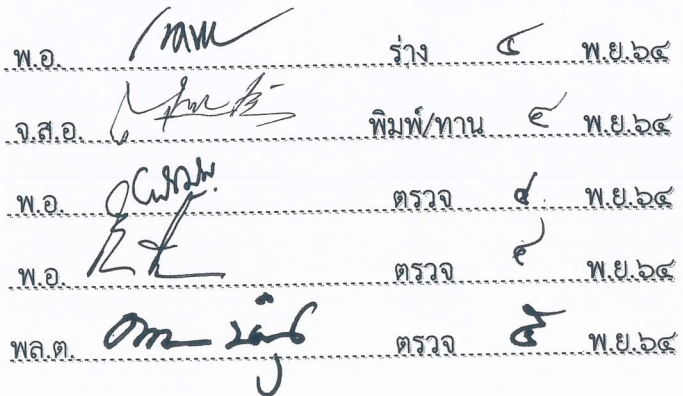 พ.อ. ร่าง ๔ พ.ย.๖๔
จ.ส.อ. พิมพ์/ทาน ๔ พ.ย.๖๔
พ.อ. ตรวจ ๔ พ.ย.๖๔
พ.อ. ตรวจ ๔ พ.ย.๖๔
พล.ต. ตรวจ ๕ พ.ย.๖๔